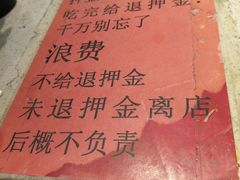 吃完给退押金
千万别忘了
浪费
不给退押金
未退押金离店
后概不负责